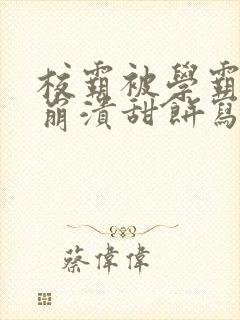 校霸被學霸
崩潰甜餅寫
蔡偉偉